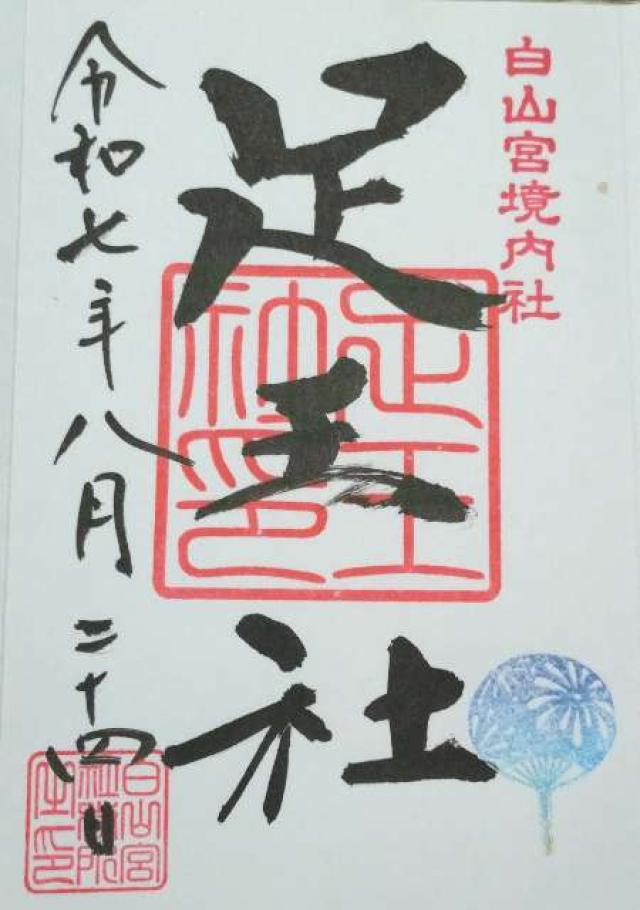 白山宮境内社
足王社
足王社印
令和七年八月二十四日
白山宮社務所之印